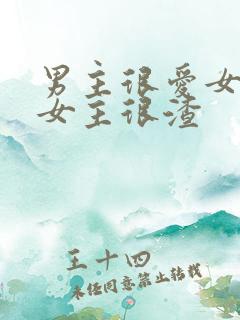 男主很爱女
女主很渣
王十四
未经同意禁止转载